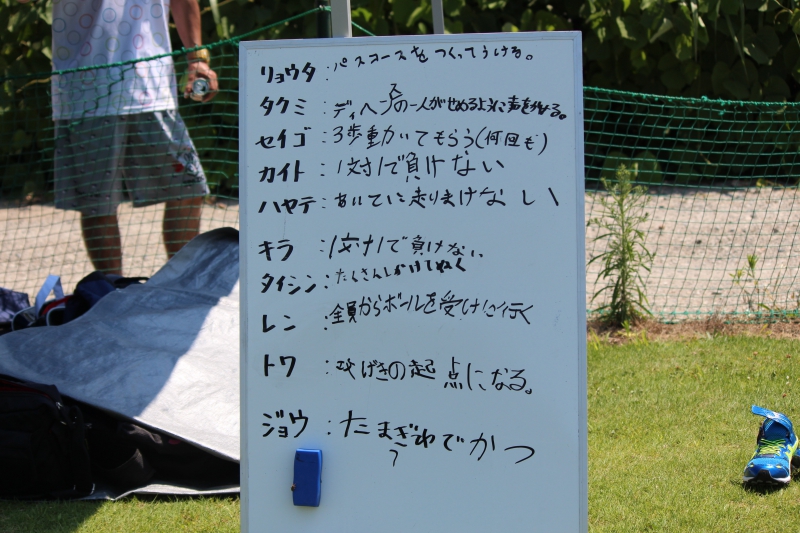 リョウタ：パスコースをつくってうける。
タクミ：ディヘンスの一人がせめるように声を出る。
セイゴ：3歩動かいてもらう(何回も)
カイト：1対1で負けない
ハヤテ：あいてに走りまけなしい
キラ：1対1で負けない
タイシン：たくさんしかけてぬく
レン：全員からボールを受けに行く
トワ：攻げきの起点になる。
ジョウ：たまぎわでかつ